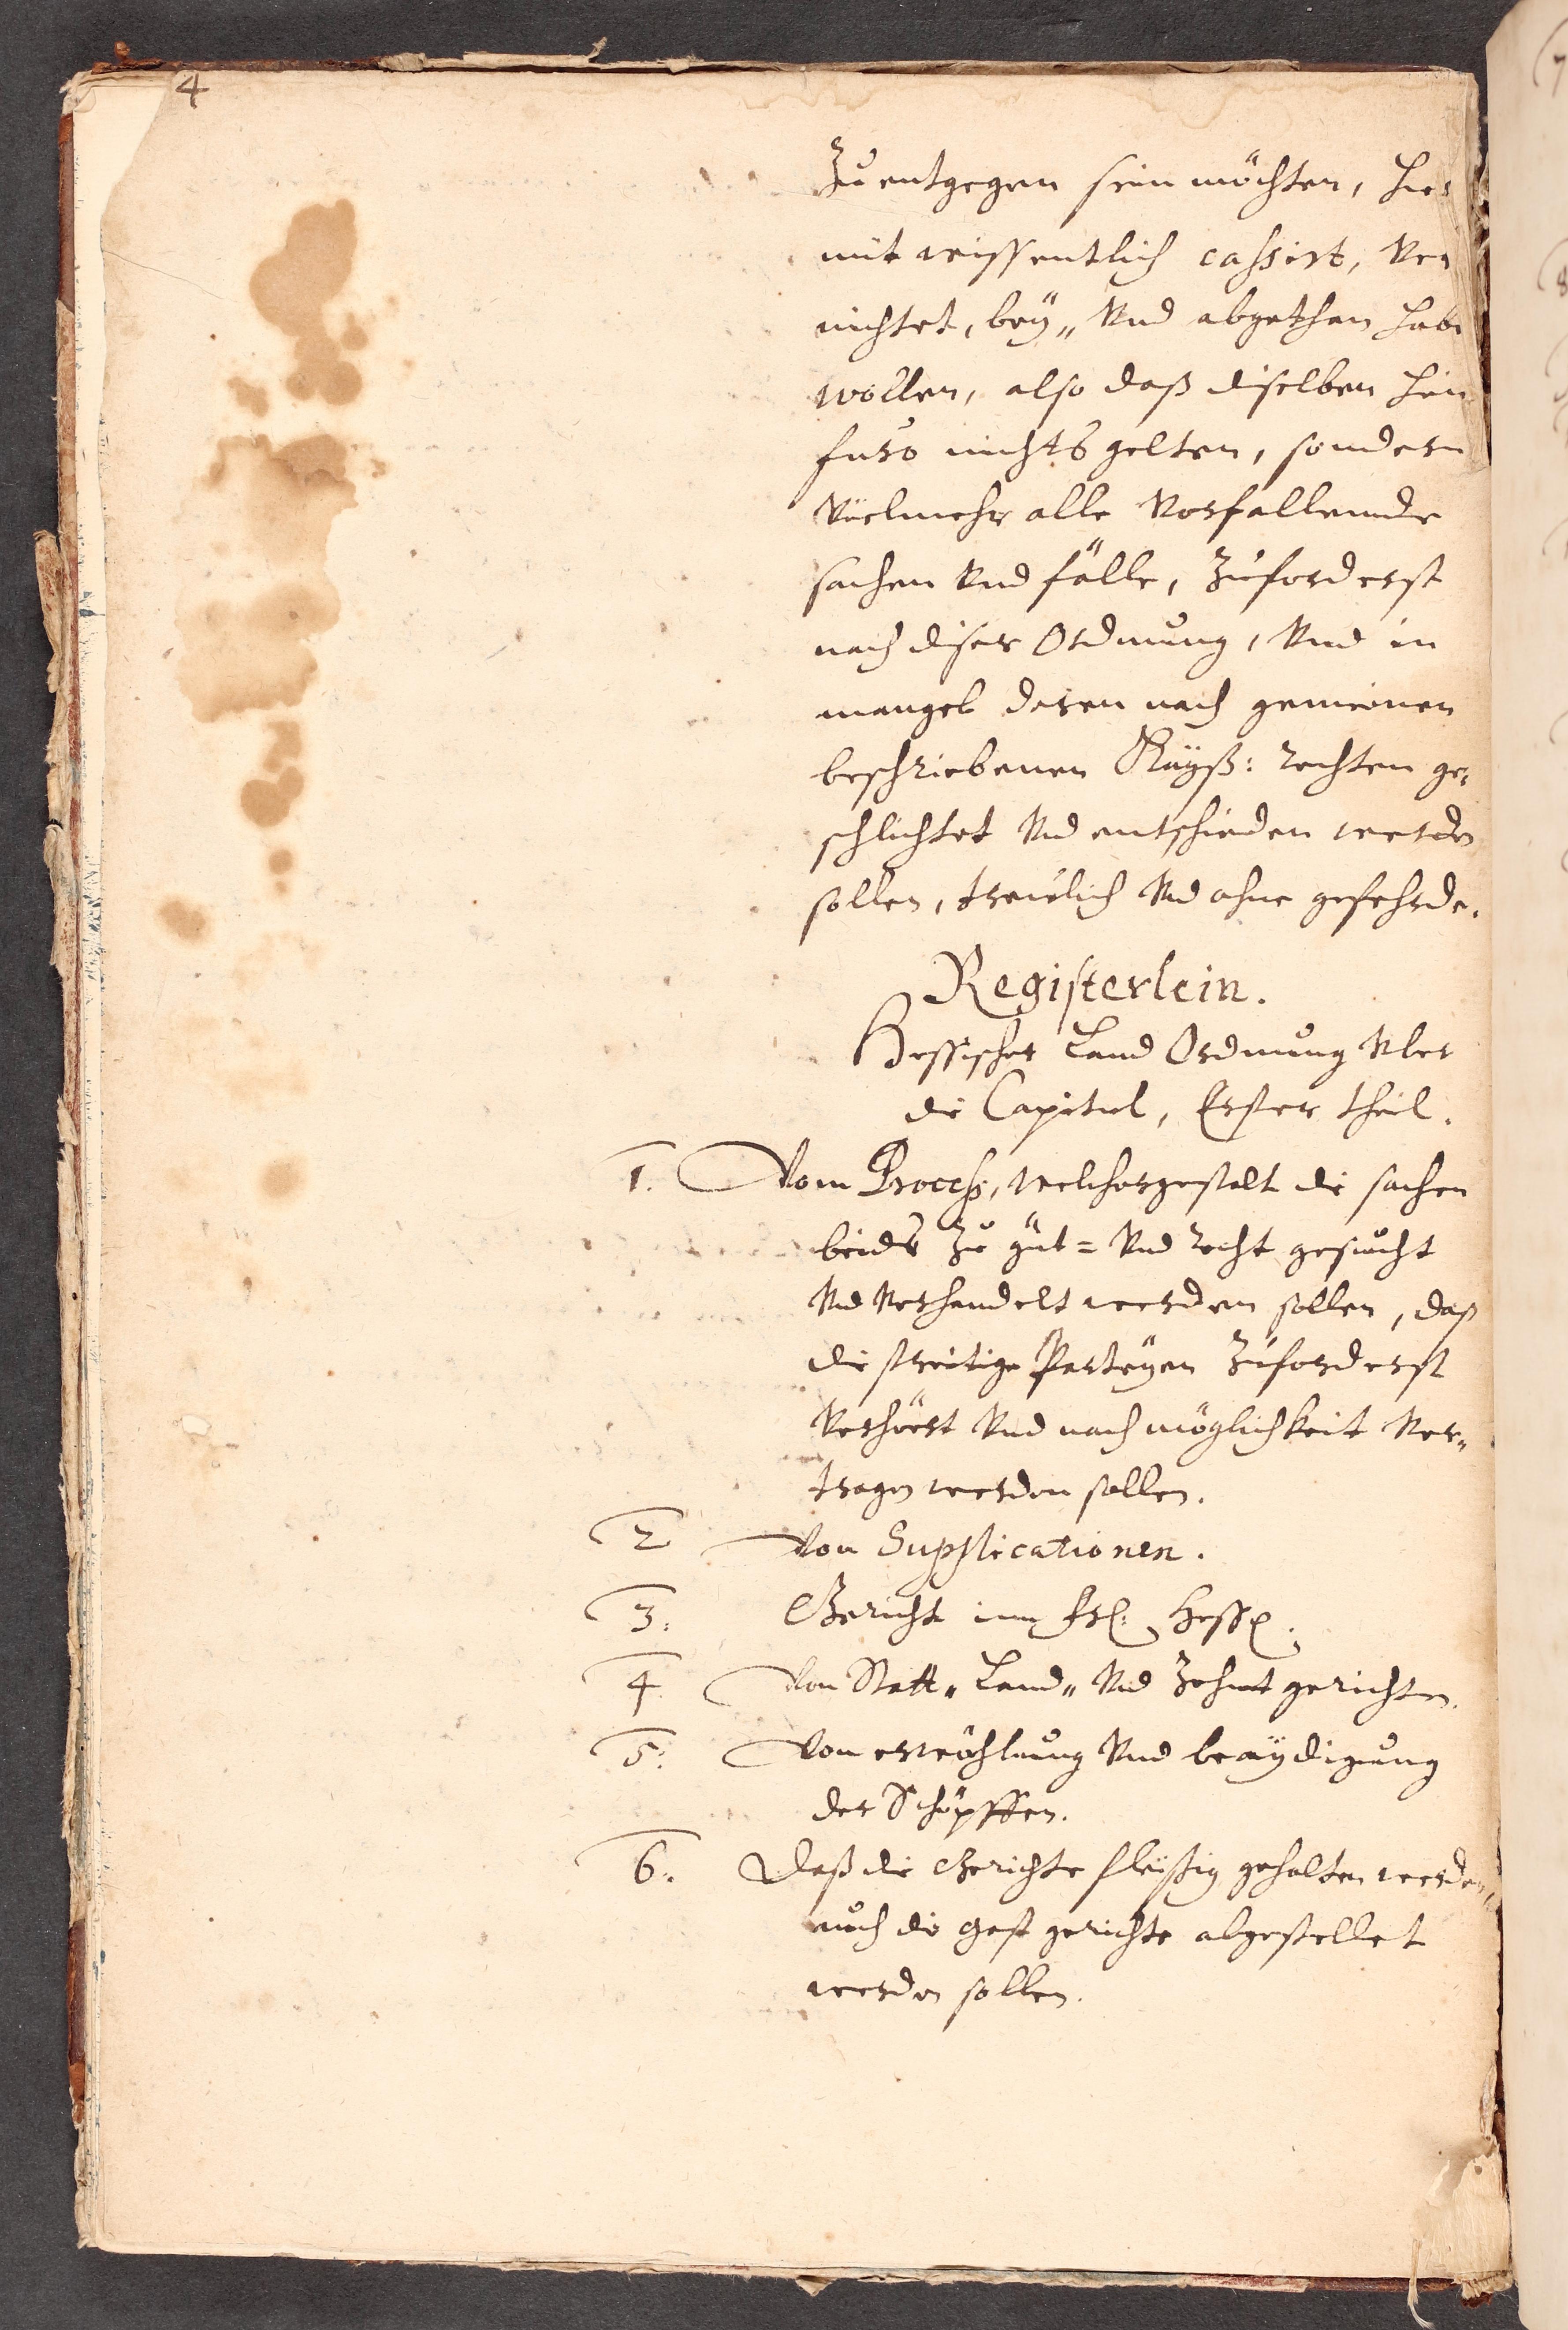 4
Zuentgegen sein möchten, hier
mit wissentlich cassirt, Ver
nichtet, bey„ Vnd abgethan habe
wollen, also daß diselben hin
furo nichts gelten, sondern
Vielmehr alle Vorfallennde
sachen Vnd fälle, Zuforderst
nach diser Ordnung, Vnd in
mangel deren nach gemeinen
beschriebenen Kayß: rechten ge„
schlichtet Vnd entschieden werden
sollen, treulich Vnd ohne gefehrde.
Registerlein.
Hessischer Land Ordnung Vber
die Capitul, Erster theil.
1. Vom Proceß, welchergestalt die sachen
beides zu güt= Vnd recht gesucht
Vnd Verhandelt werden sollen, daß
die streitige Parteyen Zuforderst
Verhört Vnd nach möglichkeit Ver„
tragen werden sollen.
2 Von Supplicationen.
3. Gericht im Hessen.
4 Von Statt„ Land„ Vnd Zehnt gerichten.
5. Von erwöhlung Vnd beaydigung
der Schöpffen.
6. Daß die Gerichte fleißig gehalten werden,
auch die Gast gerichte abgestellet
werden sollen.